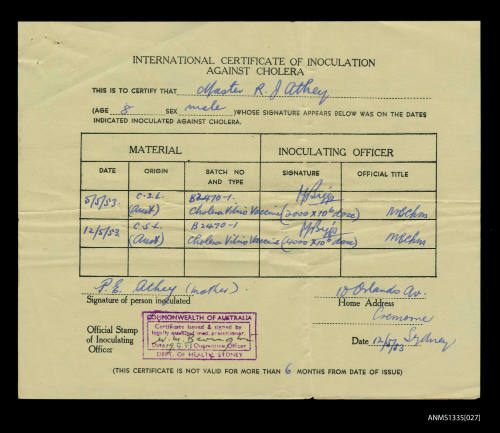 INTERNATIONAL CERTIFICATE OF INOCULATION
AGAINST CHOLERA
THIS IS TO CERTIFY THAT Master R. J Athey
(AGE 8 SEX male )WHOSE SIGNATURE APPEARS BELOW WAS ON THE DATES
INDICATED INOCULATED AGAINST CHOLERA.
MATERIAL INOCULATING OFFICER
DATE ORIGIN BATCH NO AND TYPE SIGNATURE OFFICIAL TITLE
5/5/53. C.S.L. B2470-1.
(Aust) Cholera Vibrio Vaccine (2000 X 10⁶ dose) MBChm
12/5/53 C.S.L. B2470-1
(Aust) Cholera Vibrio Vaccine (4000 X 10⁶ dose) MBChm
P.E. Athey (mother). 10 Orlando Av.
Signature of person inoculated Home Address
Cremorne
Sydney
Official Stamp
of Inoculating
Officer
COMMONWEALTH OF AUSTRALIA
Certificate issued & signed by
legally qualified med. practitioner.
Quarantine Officer
DEPT. OF HEALTH, SYDNEY
Date 12/5/53
(THIS CERTIFICATE IS NOT VALID FOR MORE THAN 6 MONTHS FROM DATE OF ISSUE)
ANMS1335[027]